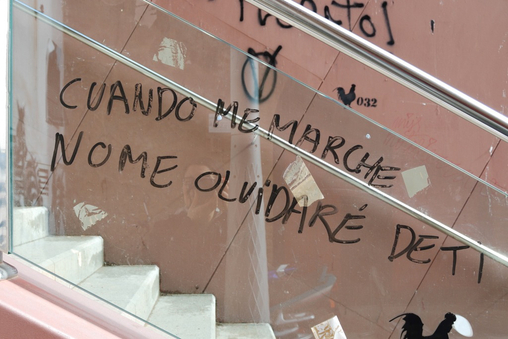 032
CUANDO ME MARCHE
NOME OLVIDARÉ DETI